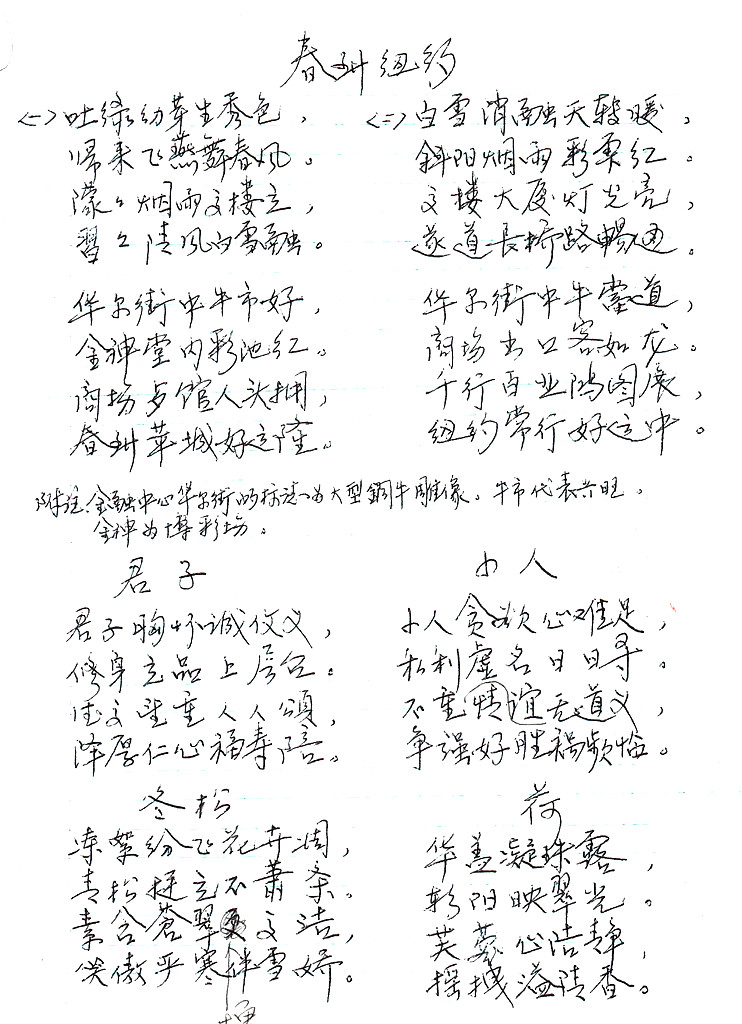 春到纽约
<一>吐绿幼芽生秀色，
归来飞燕舞春风。
濛々烟雨高楼立，
習々清风白雪融。
华尔街中牛市好，
金神堂内彩池红。
商场步馆人头拥，
春到華城好运隆。
<二>白雪消融天转暖，
斜阳烟雨彩雲红。
高楼大厦灯光亮，
遂道長桥路暢通。
华尔街中牛當道，
商场出口客如龙。
千行百业鸿图展，
纽约常行好运中。
附注：金融中心华尔街的标誌为大型銅牛雕像。牛市代表兴旺。
金神为博彩场。
君子
君子胸怀诚仗义，
修身立品上层台。
德高望重人人頌，
泽厚仁心福寿陪。
小人
小人贪欲心难足，
私利虚名日日寻。
不重情谊无道义，
争强好胜禍频临。
冬松
凍絮纷飞花卉凋，
青松挺立不蕭条。
素含蒼翠高洁，
笑傲乎寒伴雪娇。
荷
华盖凝珠露，
朝阳映翠光。
芙蓉心洁静，
摇拽溢清香。